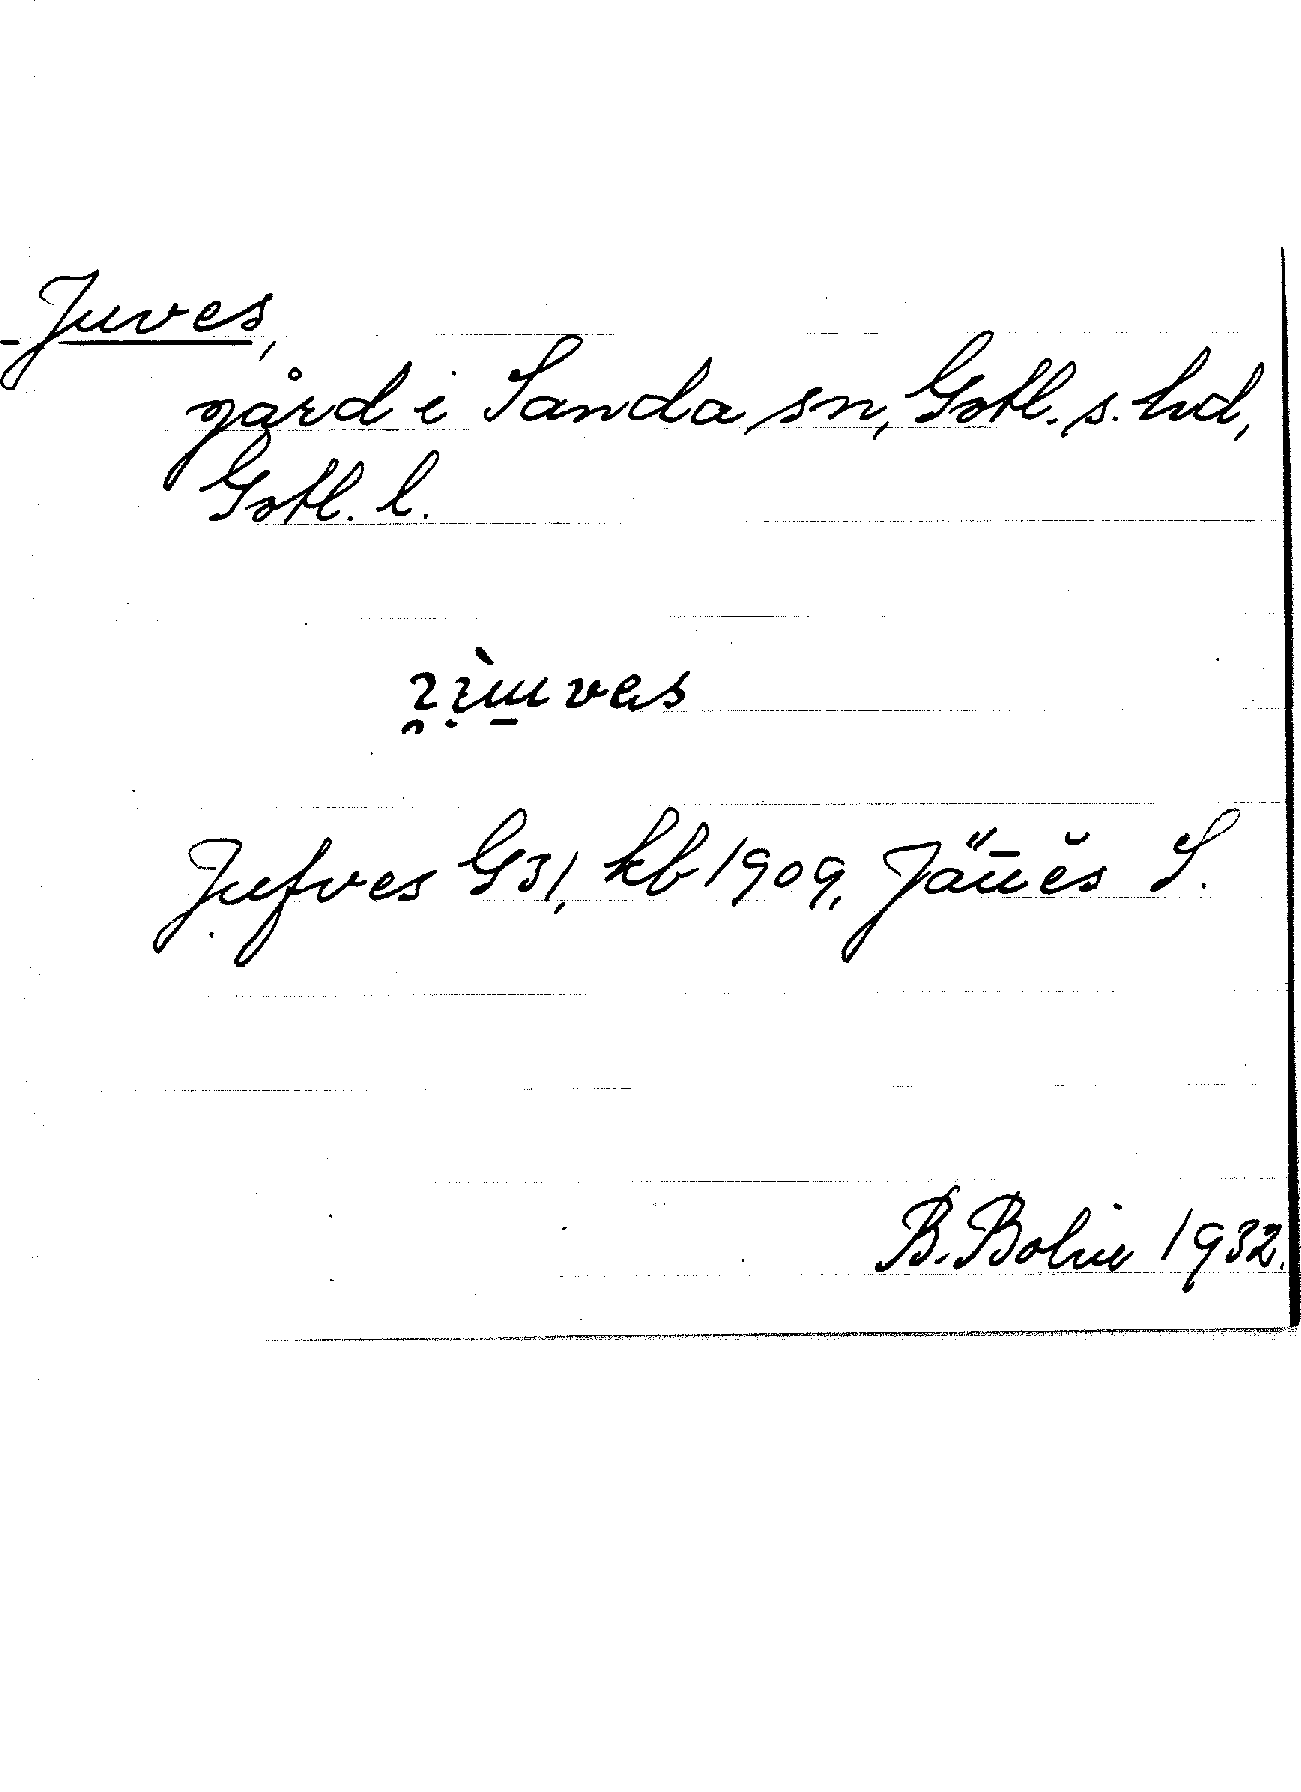 Juves,
gård i Sanda sn, Gotl. s. hd,
Gotl. l.
Jufves G31, kb 1909, Jäūĕs S.
B. Bolin 1932.